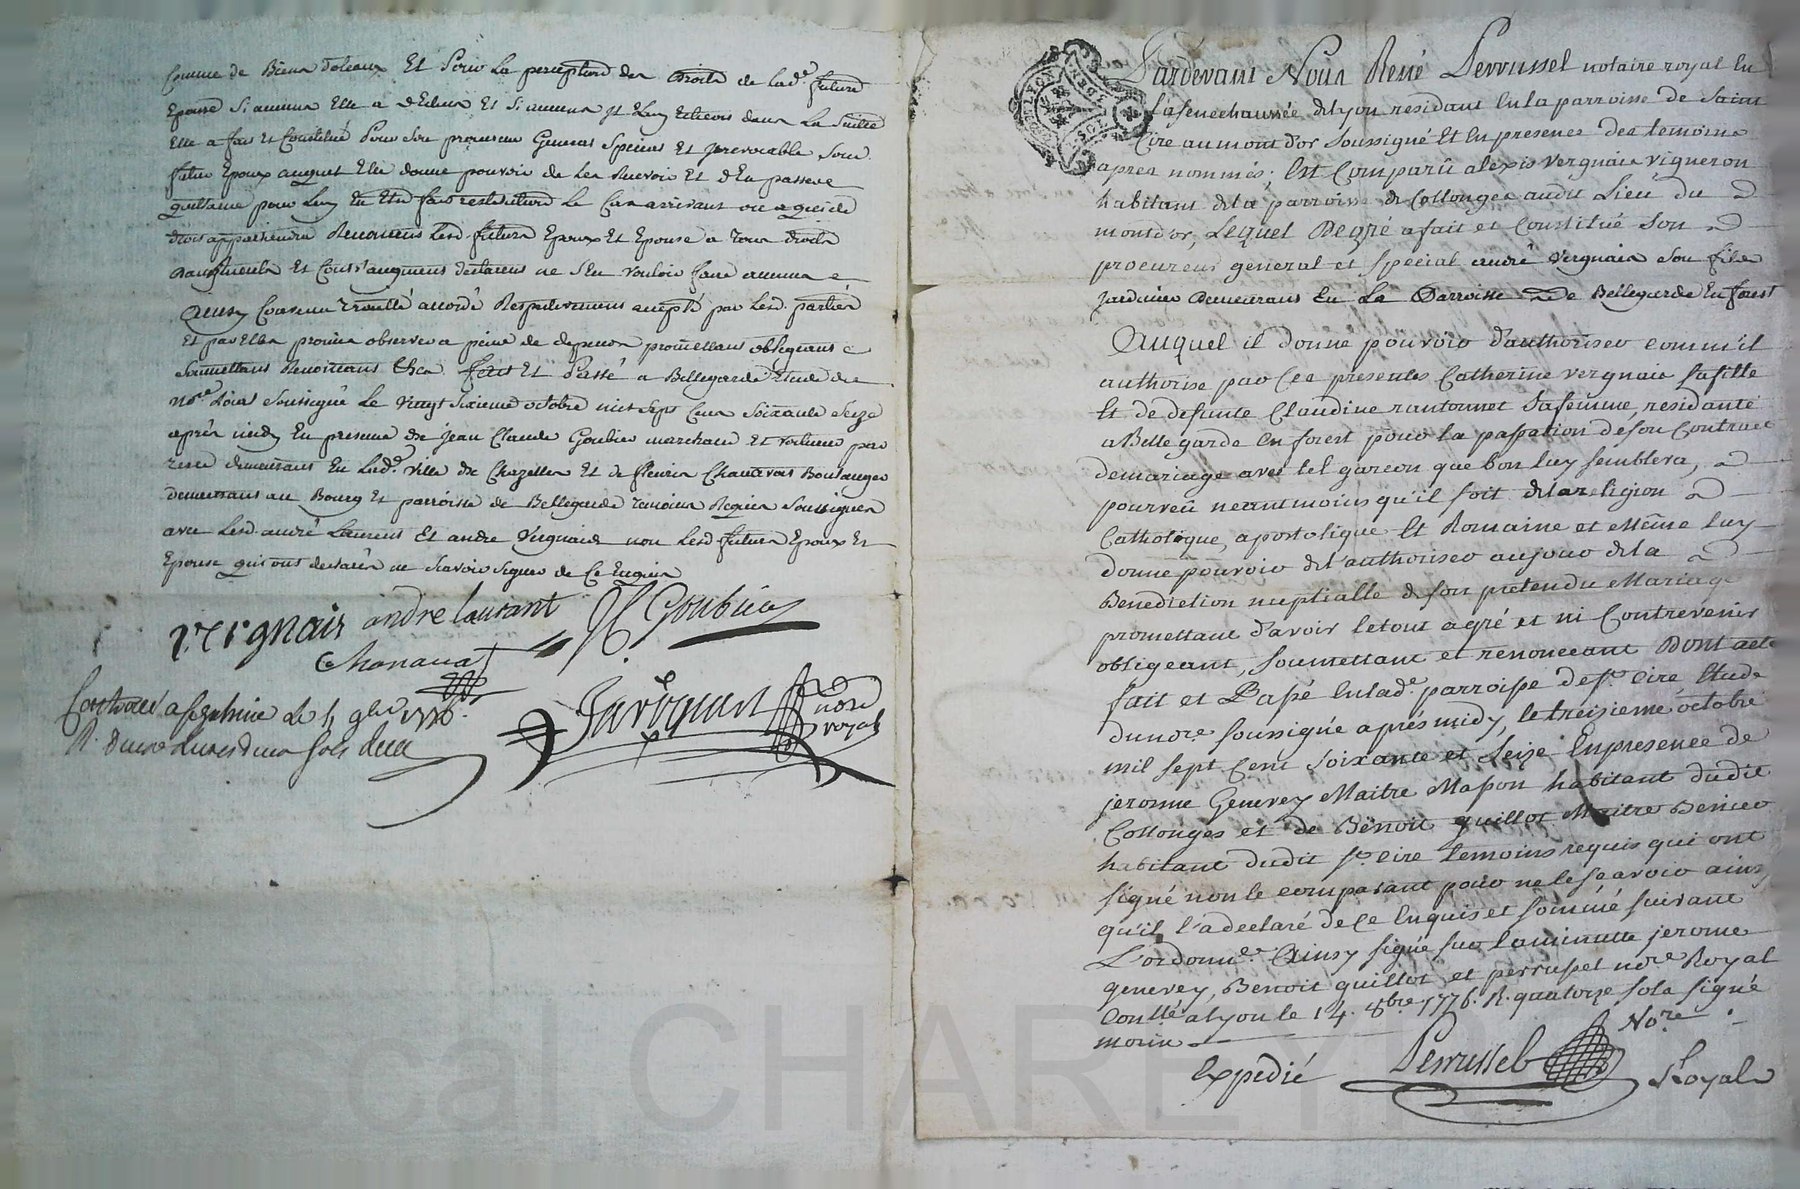 comme de Biens dotaux Et Pour la perception des Droits de lad.e future
Epouse si aucuns Elle a d'Echus Et si aucuns il luy Echeois dans La Suitte
Elle a fait et Constitué Pour son procureur General Special Et irrevocable Son
futur Epoux auquel Elle donne pouvoir de les Recevoir Et d'En passer
quittance pour luy En Etre fait restitution le Cas arrivant ou a qui de
droit appartiendra Renoncent lesd. futurs Epoux Et Epouse a Tous droits
D'augments Et Contr'augments declarent ne s'En vouloir faire aucuns
Ainsy Convenu Traitté accordé Respectivement accepté par lesd. parties
Et par Elles promis observer a peine de depens promettans obligeans
Soumettans Renonceans &ca. fait Et Passé a Bellegarde Etude du
no.re Royal Soussigné le vingt sixieme octobre mil Sept Cent Soixante Seize
après midy En presence de jean Claude Goubier marchand et voiturier par
terre demeurant En lad.e ville de Chazelles Et de fleury Chanavat Boulanger
demeurant au Bourg Et parroisse de Bellegarde Temoins Requis Soussignés
avec lesd. andré Laurent Et andre Vergnais non lesd. futurs Epoux Et
Epouse qui ont declarés ne Sçavoir Signer de Ce Enquis
Vergnais andre laurant J C Goubier
Chanavat
Controllé a le 4 9bre 1776.
R. Douze Livres Deux sols
nore
royal
Pardevant Nous René Perrussel notaire royal En
la senechaussée de Lyon residant En la parroisse de Saint
Cire au mont d'or Soussigné Et En presence des temoins
après nommés; Est Comparû alexis Vergnais vigneron
habitant de la parroisse de Collonges audit Lieu du
mont d'or, Lequel De gré a fait et Constitué Son
procureur general et special andré Vergnais Son fils
Jardinier Demeurant En La Parroisse de Bellegarde En forest
Auquel il donne pouvoir d'authoriser comm'il
authorise par Ces presentes Catherine vergnais sa fille
Et de defunte Claudine rantonnet sa femme, residante
a Belle garde en forest pour la passation de son Contract
de mariage avec tel garcon que bon luy semblera,
pourveü neantmoins qu'il soit de la religion
Catholique, apostolique Et Romaine et Même luy
donne pouvoir de l'authoriser au jour de la
Benediction nuptialle de son pretendu Mariage
promettant d'avoir le tout agré et ni Contrevenir
obligeant, soumettant et renonceant Dont acte
fait et Passé En lad.e parroisse de st. Cire Etude
du nore. soussigné après midy, le treisieme octobre
mil sept Cent soixante et Seize En presence de
jerome Genevey Maitre Masson habitant dudit
Collonges et de Benoit guillot Maitre
habitant dudit st. Cire temoins requis qui ont
signé non le comparant pour ne le scavoir ainsy
qu'il l'a declaré de Ce Enquis et sommé suivant
L'ordonn.e Ainsy signé sur la minutte jerome
genevey, Benoit guillot et perrussel nore Royal
Conllé a Lyon le 14. 8bre 1776. R. quatorze sols signé
morin
Expedié Perrussel No.re Royal
Pascal CHAREYRON